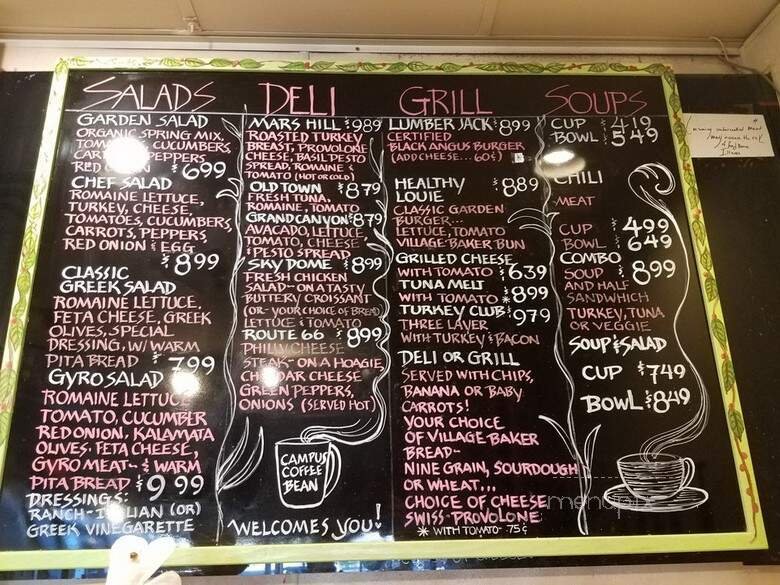 SALADS
GARDEN SALAD
ORGANIC SPRING MIX,
CUCUMBERS
PEPPERS
RED $6 99
CHEF SALAD
ROMAINE LETTUCE,
TURKEY, CHEESE,
TOMATOES, CUCUMBERS,
CARROTS, PEPPERS,
RED ONION & EGG
$8 99
CLASSIC
GREEK SALAD
ROMAINE LETTUCE,
FETA CHEESE, GREEK
OLIVES, SPECIAL
DRESSING, W/ WARM
PITA BREAD $7 99
GYRO SALAD
ROMAINE LETTUCE
TOMATO, CUCUMBER
RED ONION, KALAMATA
OLIVES, FETA CHEESE,
GYRO MEAT & WARM
PITA BREAD $9 99
DRESSINGS:
RANCH - (OR)
GREEK VINEGARETTE
DELI
MARS HILL $9 89
ROASTED TURKEY
BREAST, PROVOLONE
CHEESE, BASIL PESTO
SPREAD, ROMAINE &
TOMATO (HOT OR COLD)
OLD TOWN $8 79
FRESH TUNA,
ROMAINE, TOMATO
GRAND CANYON $8 79
AVACADO, LETTUCE
TOMATO, CHEESE
& PESTO SPREAD
SKY DOME $8 99
FRESH CHICKEN
SALAD - ON A TASTY
BUTTERY CROISSANT
(OR - YOUR CHOICE OF BREAD)
LETTUCE & TOMATO
ROUTE 66 $8 99
PHILLY CHEESE
STEAK - ON A HOAGIE,
CHEDDAR CHEESE
GREEN PEPPERS,
ONIONS (SERVED HOT)
CAMPUS
COFFEE
BEAN
WELCOMES YOU!
GRILL
LUMBER JACK $8 99
CERTIFIED
BLACK ANGUS BURGER
(ADD CHEESE... 60¢)
HEALTHY $8 89
LOUIE
CLASSIC GARDEN
BURGER...
LETTUCE, TOMATO
VILLAGE BAKER BUN
GRILLED CHEESE
WITH TOMATO * $6 39
TUNA MELT
WITH TOMATO * $8 99
TURKEY CLUB $9 79
THREE LAYER
WITH TURKEY & BACON
DELI OR GRILL
SERVED WITH CHIPS,
BANANA OR BABY
CARROTS!
YOUR CHOICE
OF VILLAGE BAKER
BREAD -
NINE GRAIN, SOURDOUGH
OR WHEAT...
CHOICE OF CHEESE
SWISS - PROVOLONE
* WITH TOMATO - 75¢
SOUPS
CUP $4 19
BOWL $5 49
CHILI
MEAT
CUP $4 99
BOWL $6 49
COMBO
SOUP $8 99
AND HALF
SANDWHICH
TURKEY, TUNA
OR VEGGIE
SOUP & SALAD
CUP $7 49
BOWL $8 49
menupix